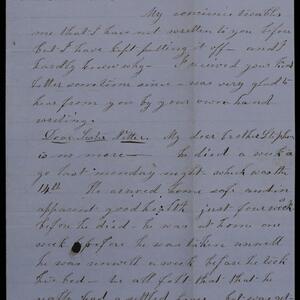 My concience troubles
me that I have not written to you before
but I have kept putting it off - and I
hardly know why - I recived your kind
letter sometime since - was very glad to
hear from you by your own hand
writing.
Dear Sister My dear brother Stephen
is no more - he died a week a
go last monday night which was the
14th He arived home safe and in
apparent good health just four weeks
before he died - he was at home one
week before he was taken unwell
he was unwell a week before he took
his bed - we all felt that that he
really had a settled